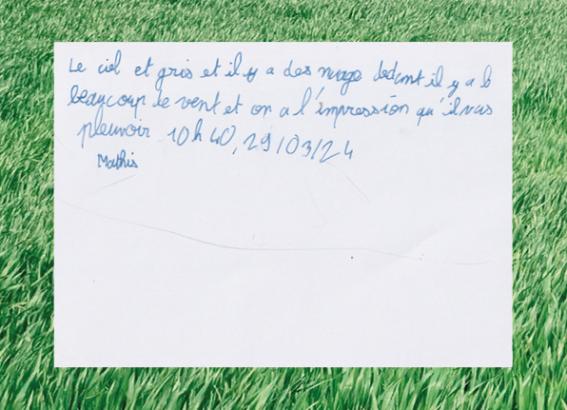 Le ciel et gris et il y a des nuage dedant il y a b
beaucoup de vent et on a l'impression qu'il vas
pleuvoir 10h40, 29/03/24
Mathis